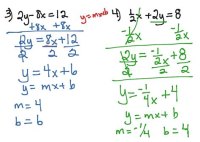 3) 2y-8x=12
+8x +8x
2y = 8x+12
2 2 2
y = 4x+6
y = mx+b
m = 4
b = 6
y=mx+b
4) 1/2x+2y=8
-1/2x -1/2x
2y = -1/2x+8
2 2 2
y = -1/4x+4
y = mx + b
m = -1/4 b = 4